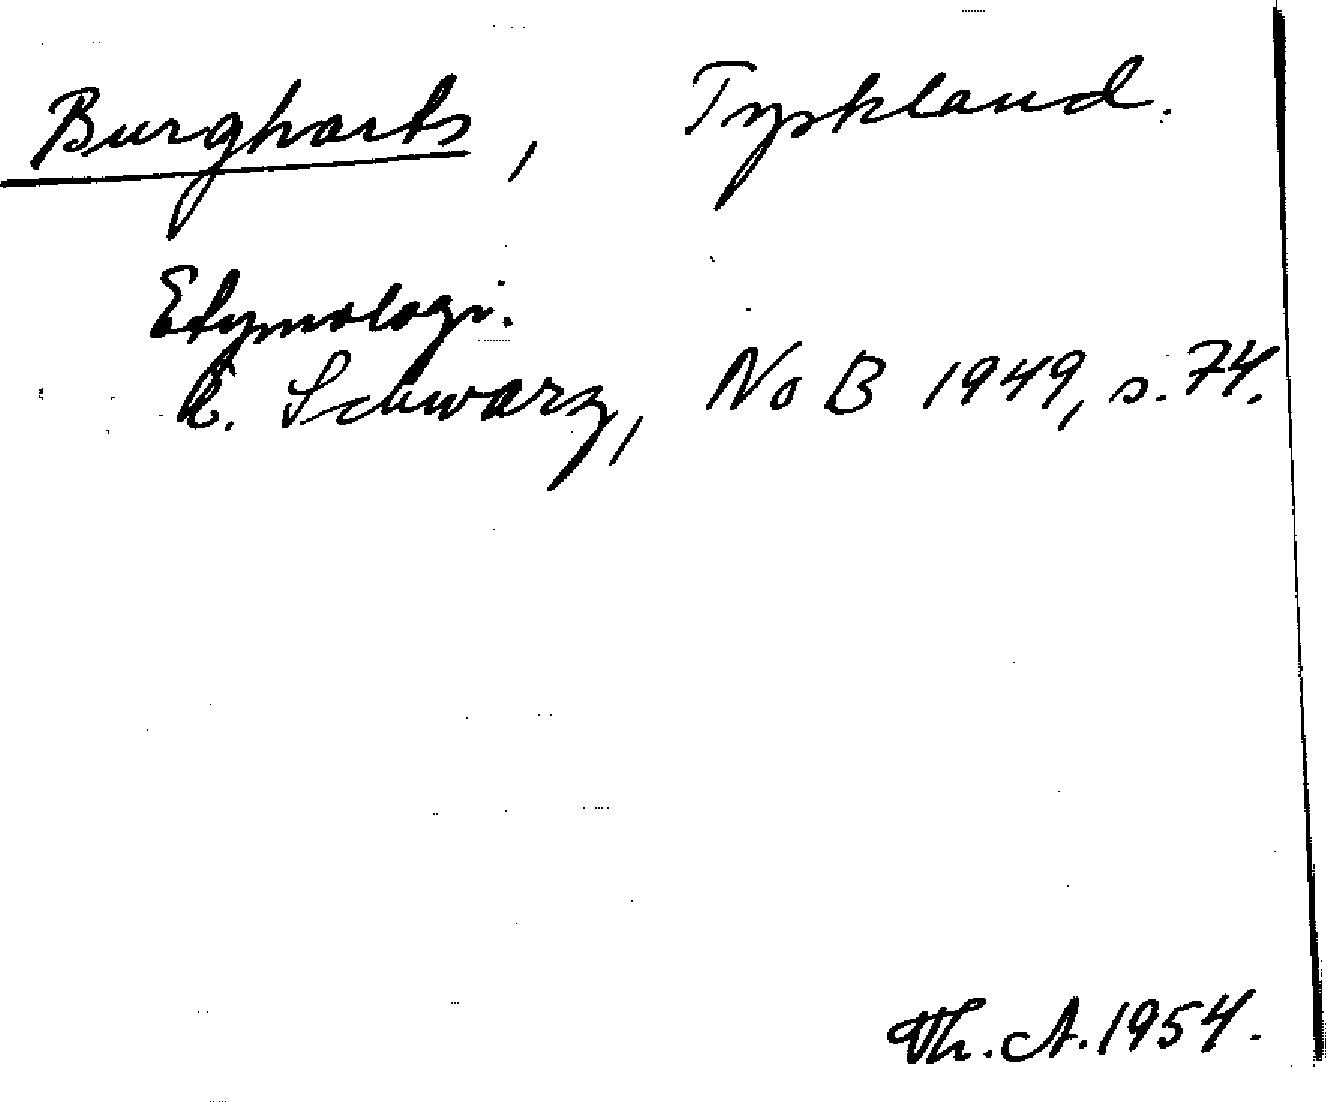 Burgharts, Tyskland.
Etymologi.
E. Schwarz, NoB 1949, s. 74.
Th. A. 1954.